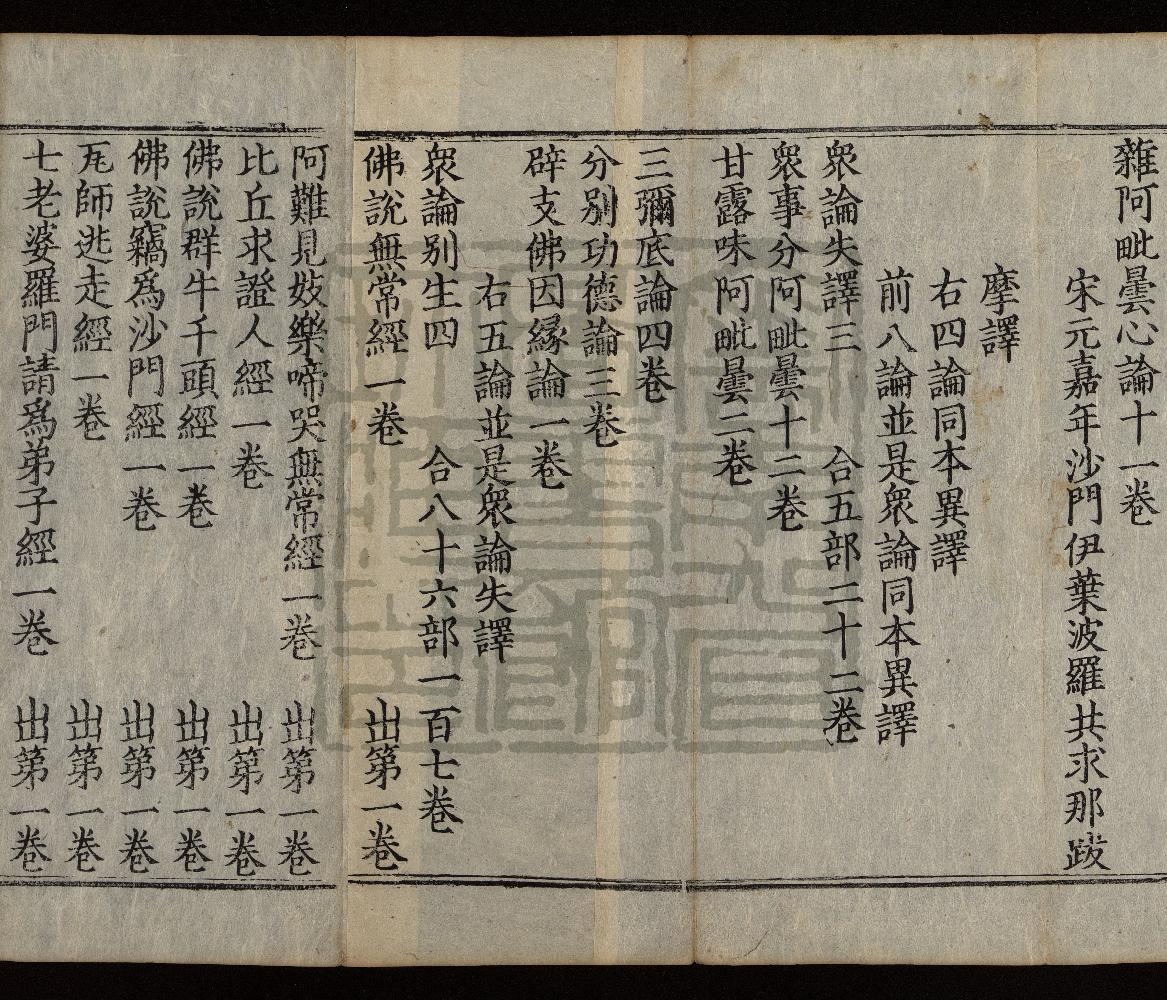 雜阿毗曇心論十一卷
宋元嘉年沙門伊葉波羅共求那跋
摩譯
右四論同本異譯
前八論並是衆論同本異譯
衆論失譯三　合五部二十二卷
衆事分阿毗曇十二卷
甘露味阿毗曇二卷
三彌底論四卷
分别功德論三卷
辟支佛因緣論一卷
右五論並是衆論失譯
衆論别生四　合八十六部一百七卷
佛說無常經一卷　出第一卷
阿難見妓樂啼哭無常經一卷　出第一卷
比丘求證人經一卷　出第一卷
佛說群牛千頭經一卷　出第一卷
佛說竊為沙門經一卷　出第一卷
瓦師逃走經一卷　出第一卷
七老婆羅門請為弟子經一卷　出第一卷